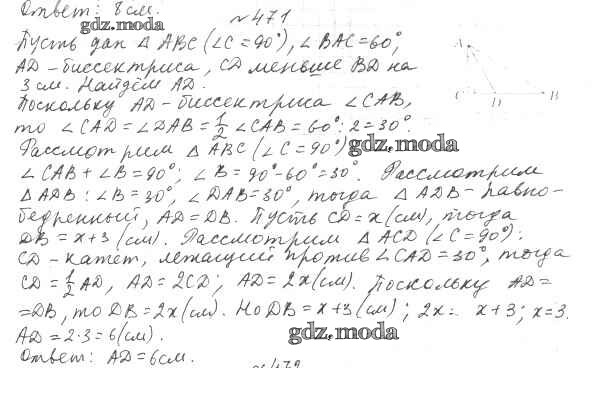 Ответ: 8 см.
gdz.moda
№ 471
Пусть дан △ ABC (∠C = 90°), ∠BAC = 60°,
AD - биссектриса, CD меньше BD на
3 см. Найдём AD.
Поскольку AD - биссектриса ∠CAB,
то ∠CAD = ∠DAB = 1/2 ∠CAB = 60° : 2 = 30°.
Рассмотрим △ ABC (∠C = 90°) gdz.moda
∠CAB + ∠B = 90°; ∠B = 90° - 60° = 30°. Рассмотрим
△ ADB: ∠B = 30°, ∠DAB = 30°, тогда △ ADB - равно-
бедренный, AD = DB. Пусть CD = x (см), тогда
DB = x + 3 (см). Рассмотрим △ ACD (∠C = 90°):
CD - катет, лежащий против ∠CAD = 30°, тогда
CD = 1/2 AD, AD = 2CD; AD = 2x (см). Поскольку AD =
= DB, то DB = 2x (см). Но DB = x + 3 (см); 2x = x + 3; x = 3.
AD = 2·3 = 6 (см).
gdz.moda
Ответ: AD = 6 см.
A
C D B